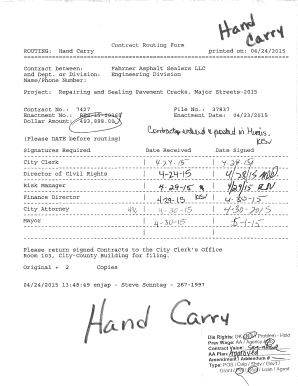 Hand
Carry
Contract Routing Form
ROUTING: Hand Carry printed on: 06/24/2015
Contract between: Fahrner Asphalt Sealers LLC
and Dept. or Division: Engineering Division
Name/Phone Number:
Project: Repairing and Sealing Pavement Cracks, Major Streets-2015
Contract No.: 7427 File No.: 37837
Enactment No.: Enactment Date: 04/23/2015
Dollar Amount: 493,898.00
Contract entered & posted in Munis.
KCW
(Please DATE before routing)
Signatures Required Date Received Date Signed
City Clerk 4-24-15 4-24-15
Director of Civil Rights 4-24-15 4/28/15
Risk Manager 4-29-15 4/29/15
Finance Director 4-29-15 KCW 4-30-15
City Attorney 4-30-15 4-30-2015
Mayor 4-30-15 5-1-15
Please return signed Contracts to the City Clerk's Office
Room 103, City-County Building for filing.
Original + 2 Copies
04/24/2015 13:48:49 enjap - Steve Sonntag - 267-1997
Hand Carry
Dis Rights: OK / Problem - Hold
Prev Wage: AA / Agency / No
Contract Value:
AA Plan: Approved
Amendment / Addendum #
Type: POS / Dvlp / Sbdv / Gov't /
Grant / PW / Goal / Loan / Agrmt